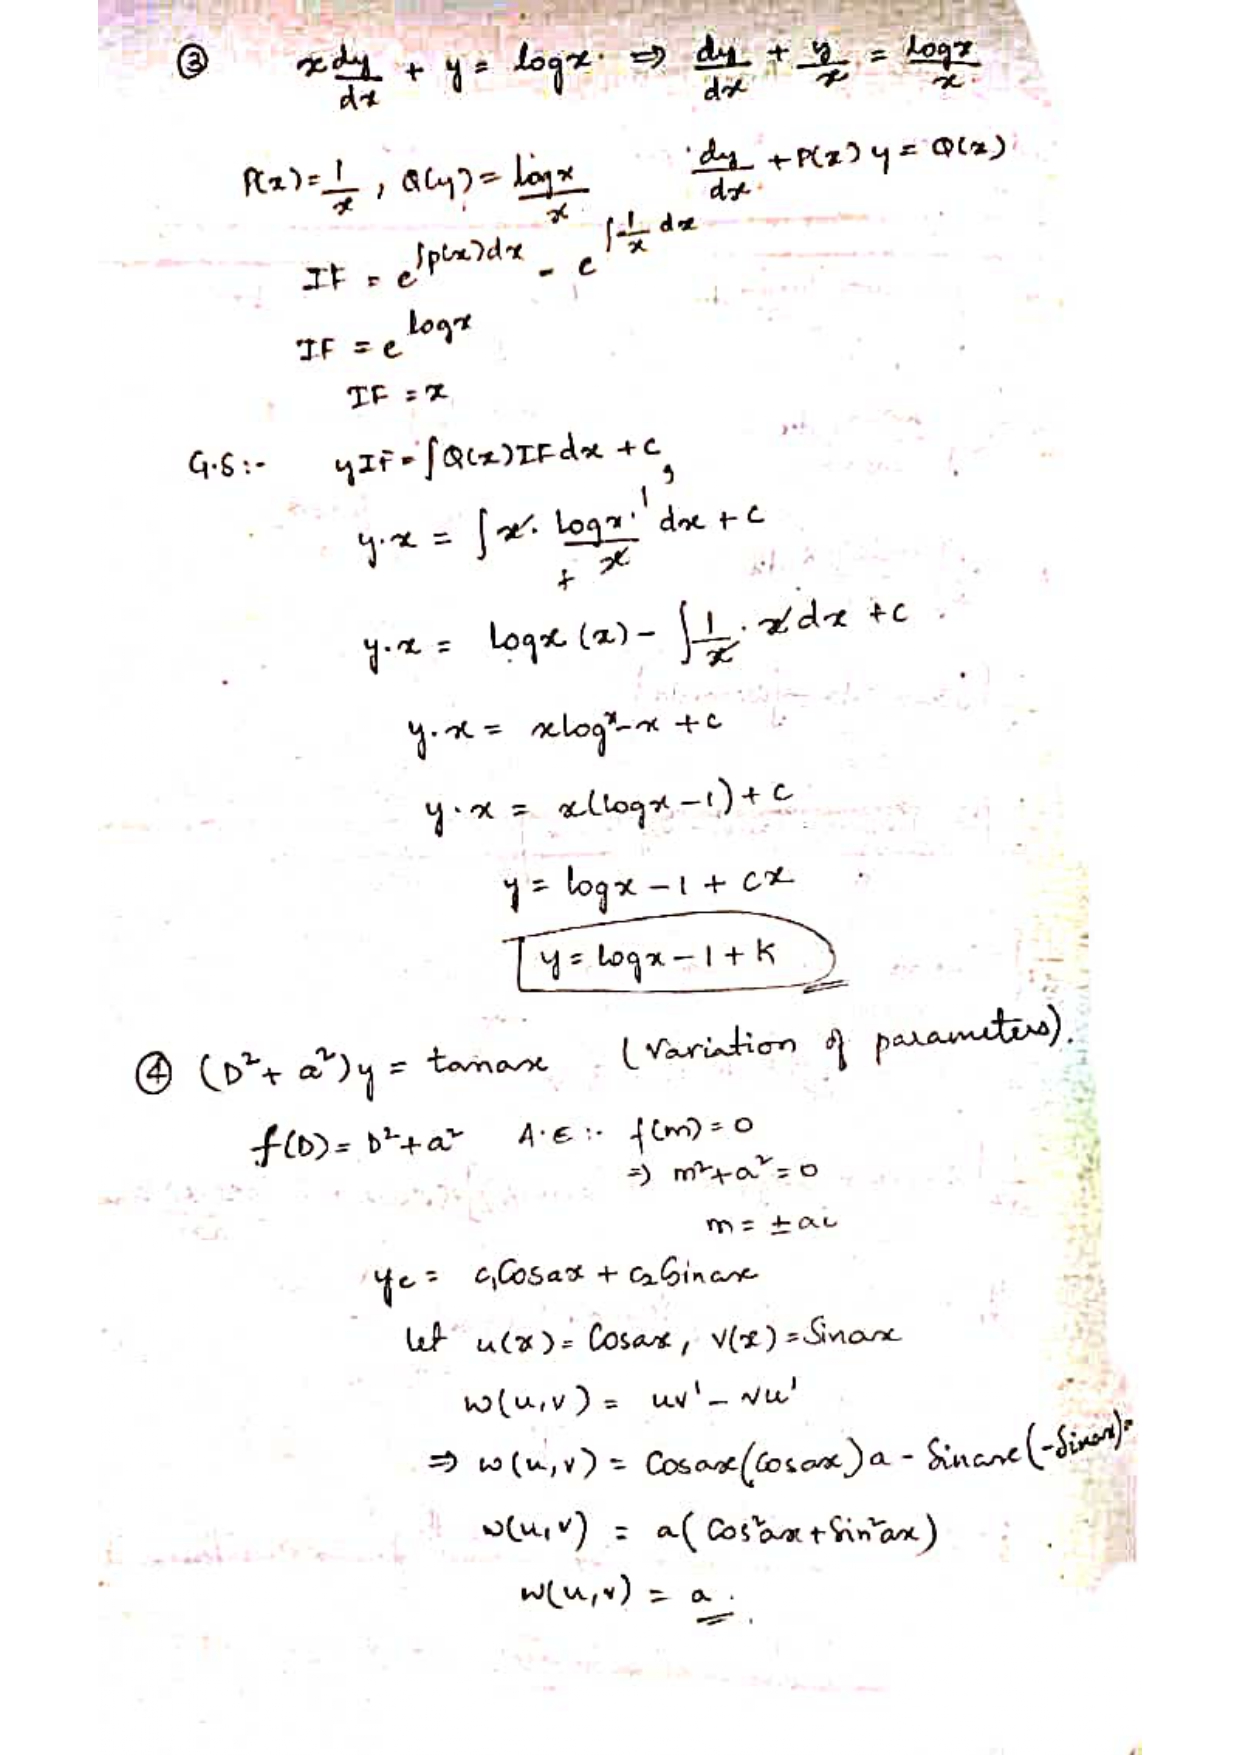 ③ x dy/dx + y = logx. ⇒ dy/dx + y/x = logx/x.
P(x) = 1/x, Q(y) = logx/x dy/dx + P(x) y = Q(x)
IF = e^∫p(x)dx - e^∫1/x dx
IF = e^logx
IF = x
G.S:- yIF = ∫Q(x)IFdx + c,
y.x = ∫x. logx/x dx + c
y.x = logx (x) - ∫1/x . x dx + c
y.x = xlogx - x + c
y.x = x(logx - 1) + c
y = logx - 1 + cx
y = logx - 1 + K
④ (D² + a²)y = tanax (Variation of parameters).
f(D) = D² + a² A.E :- f(m) = 0
⇒ m² + a² = 0
m = ± ai
yc = c₁Cosax + c₂Sinax
let u(x) = Cosax, v(x) = Sinax
w(u,v) = uv' - vu'
⇒ w(u,v) = Cosax(Cosax)a - Sinax(-Sinax)a
w(u,v) = a(Cos²ax + Sin²ax)
w(u,v) = a.